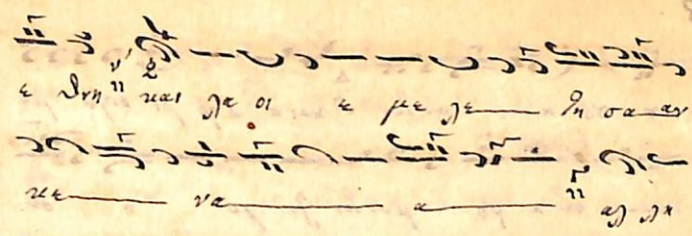 ε θνη και λα οι ε με λε θη σα αν
κε να α αλ λα